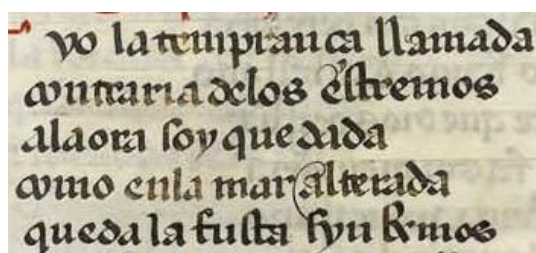 yo la temprança llamada
contraria delos estremos
ala ora soy quedada
como enla mar alterada
queda la fusta syn Remos